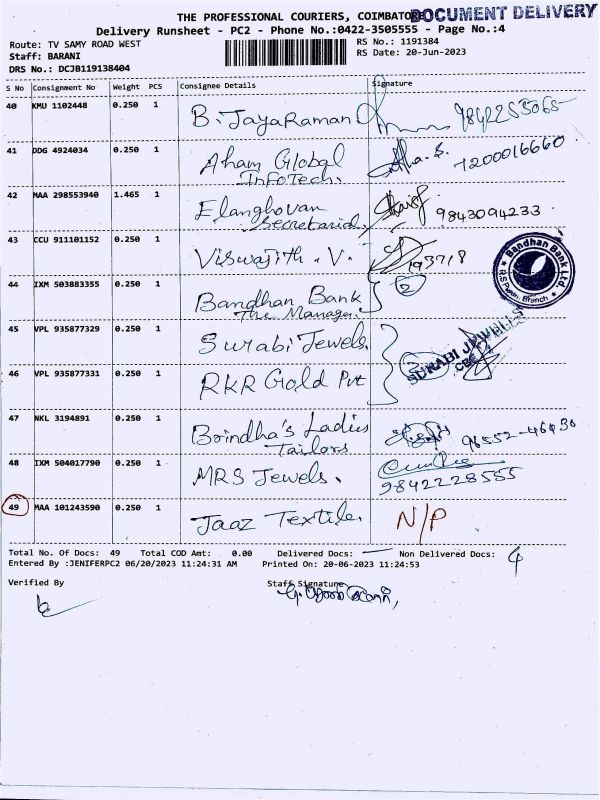 THE PROFESSIONAL COURIERS, COIMBATORE
DOCUMENT DELIVERY
Delivery Runsheet - PC2 - Phone No.:0422-3505555 - Page No.:4
Route: TV SAMY ROAD WEST
RS No.: 1191384
Staff: BARANI
RS Date: 20-Jun-2023
DRS No.: DCJB119138404
S No Consignment No Weight PCS Consignee Details Signature
40 KMU 1102448 0.250 1 B. JayaRaman 9842253065
41 DDG 4924034 0.250 1 Aham Global 7200016660
InfoTech.
42 MAA 298553940 1.465 1 Elanghovan 9843094233
Secretarial
43 CCU 911101152 0.250 1 Viswajith . V. 193718
Bandhan Bank Ltd.
R.S Puram, Branch
44 IXM 503883355 0.250 1 Bandhan Bank 2
The Manager
45 VPL 935877329 0.250 1 Surabi Jewels.
SURABI JEWELLS
CBE
46 VPL 935877331 0.250 1 RKR Gold Pvt
47 NKL 3194891 0.250 1 Brindha's Ladies 96552-46030
Tailors
48 IXM 504017790 0.250 1 MRS Jewels. 9842228555
49 MAA 101243590 0.250 1 Jaaz Textile. N/P
Total No. Of Docs: 49 Total COD Amt: 0.00 Delivered Docs: — Non Delivered Docs: 4
Entered By :JENIFERPC2 06/20/2023 11:24:31 AM Printed On: 20-06-2023 11:24:53
Verified By Staff Signature